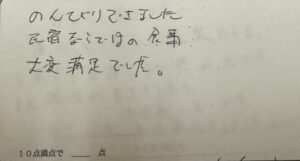 のんびりできました
民宿ならではの食事
大変満足でした。
10点満点で ____ 点